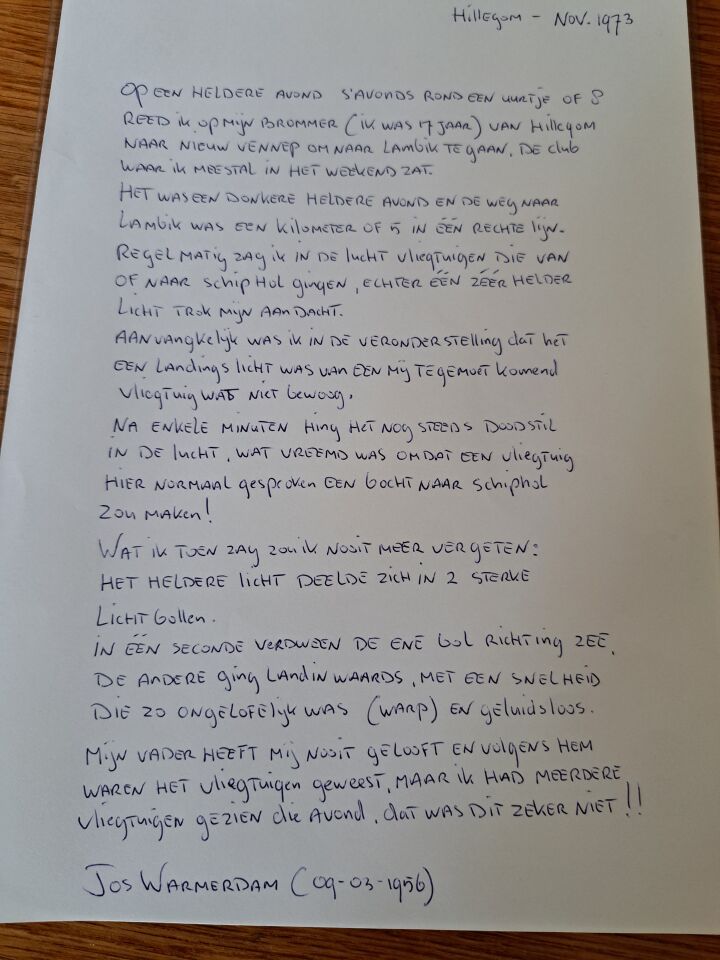 Hillegom - Nov. 1973
Op een heldere avond s'avonds rond een uurtje of 8
reed ik op mijn brommer (ik was 17 jaar) van Hillegom
naar Nieuw Vennep om naar Lambik te gaan, de club
waar ik meestal in het weekend zat.
Het was een donkere heldere avond en de weg naar
Lambik was een kilometer of 5 in één rechte lijn.
Regelmatig zag ik in de lucht vliegtuigen die van
of naar Schiphol gingen, echter één zéér helder
licht trok mijn aandacht.
Aanvangkelijk was ik in de veronderstelling dat het
een landingslicht was van een mij tegemoet komend
vliegtuig wat niet bewoog.
Na enkele minuten hing het nog steeds doodstil
in de lucht, wat vreemd was omdat een vliegtuig
hier normaal gesproken een bocht naar Schiphol
zou maken!
Wat ik toen zag zou ik nooit meer vergeten:
Het heldere licht deelde zich in 2 sterke
lichtbollen.
In één seconde verdween de ene bol richting zee,
de andere ging landinwaards, met een snelheid
die zo ongelofelijk was (warp) en geluidsloos.
Mijn vader heeft mij nooit gelooft en volgens hem
waren het vliegtuigen geweest, maar ik had meerdere
vliegtuigen gezien die avond, dat was dit zeker niet!!
Jos Warmerdam (09-03-1956)